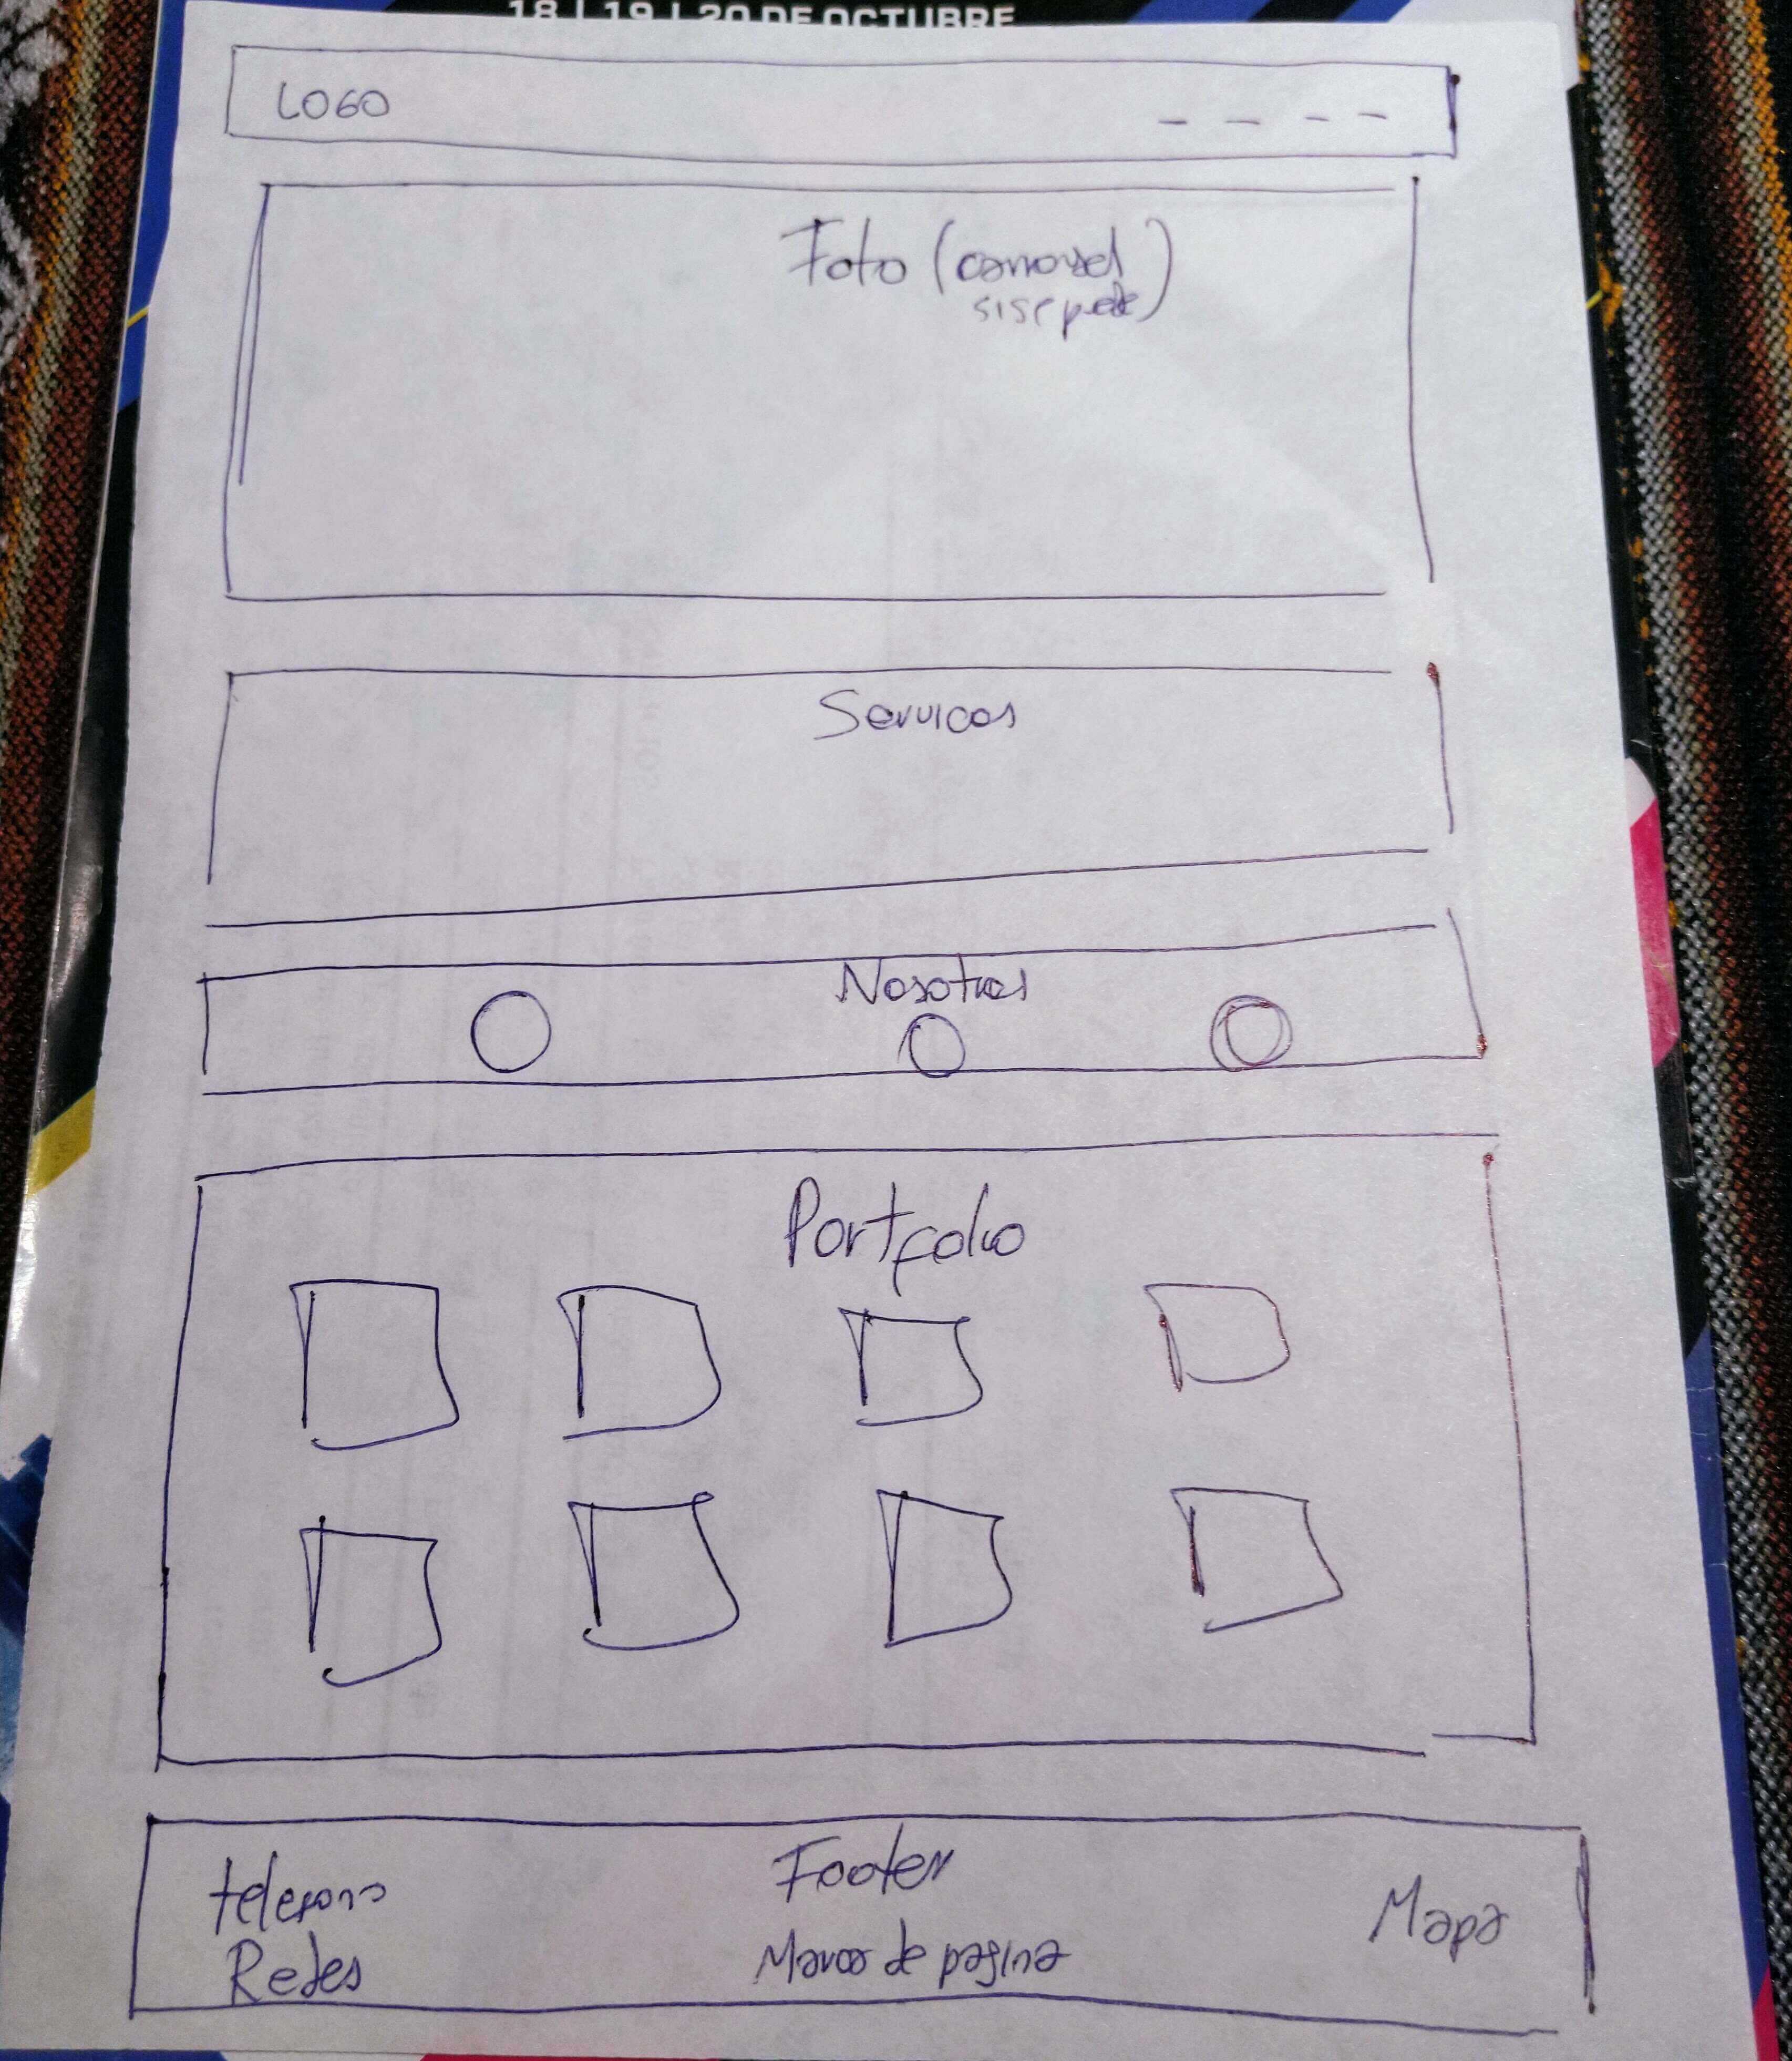 18 | 19 | 20 DE OCTUBRE
LOGO
Foto (carrousel
si se puede)
Servicos
Nosotros
Portfolio
Footer
telefono
Mapa
Marca de pagina
Redes